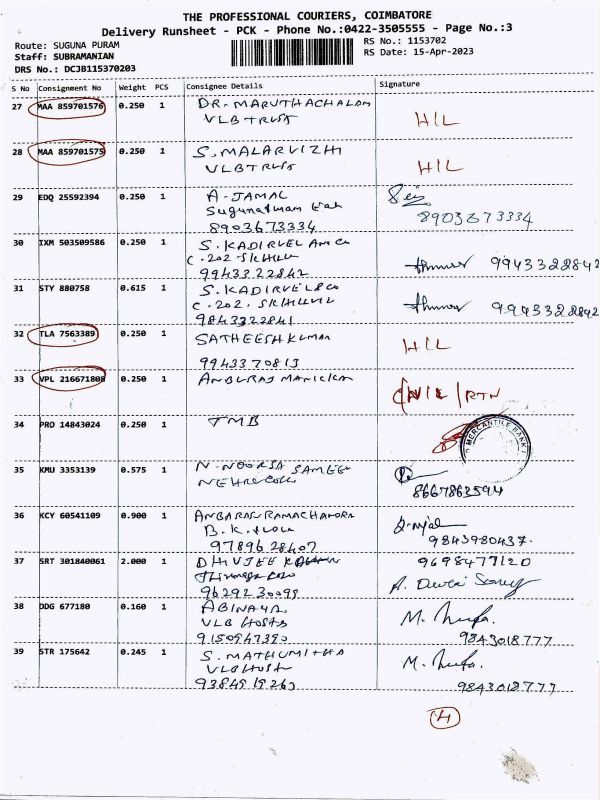 THE PROFESSIONAL COURIERS, COIMBATORE
Delivery Runsheet - PCK - Phone No.:0422-3505555 - Page No.:3
Route: SUGUNA PURAM
RS No.: 1153702
Staff: SUBRAMANIAN
RS Date: 15-Apr-2023
DRS No.: DCJB115370203
S No Consignment No Weight PCS Consignee Details Signature
27 MAA 859701576 0.250 1 DR. MARUTHACHALAM
VLB TRUST
H/L
28 MAA 859701575 0.250 1 S. MALARVIZHI
VLB TRUST
H/L
29 EDQ 25592394 0.250 1 A. JAMAL
8903673334
8903673334
30 IXM 503509586 0.250 1 S. KADIRVEL AND CO
C. 202
9943322842
9943322842
31 STY 880758 0.615 1 S. KADIRVEL & CO
C. 202.
9843322841
9943322842
32 TLA 7563389 0.250 1 SATHEESH KUMAR
9943370813
H/L
33 VPL 216671808 0.250 1 ANBURAJ MANICKA
/ RTN
34 PRO 14843024 0.250 1 TMB
MERCANTILE BANK
35 KMU 3353139 0.575 1 N. NOORSA SAMEEN
8667863594
36 KCY 60541109 0.900 1 ANBARAS RAMACHANDRA
B.K.
9789628407
9843980437.
37 SRT 301840061 2.000 1 DHIVJEE
9629230099
9698477120
38 DDG 677180 0.160 1 ABINAYA
VLB HOSTS
9150947390
M.
9843018777
39 STR 175642 0.245 1 S. MATHUMITHA
VLB HOST
M.
9843018777
4